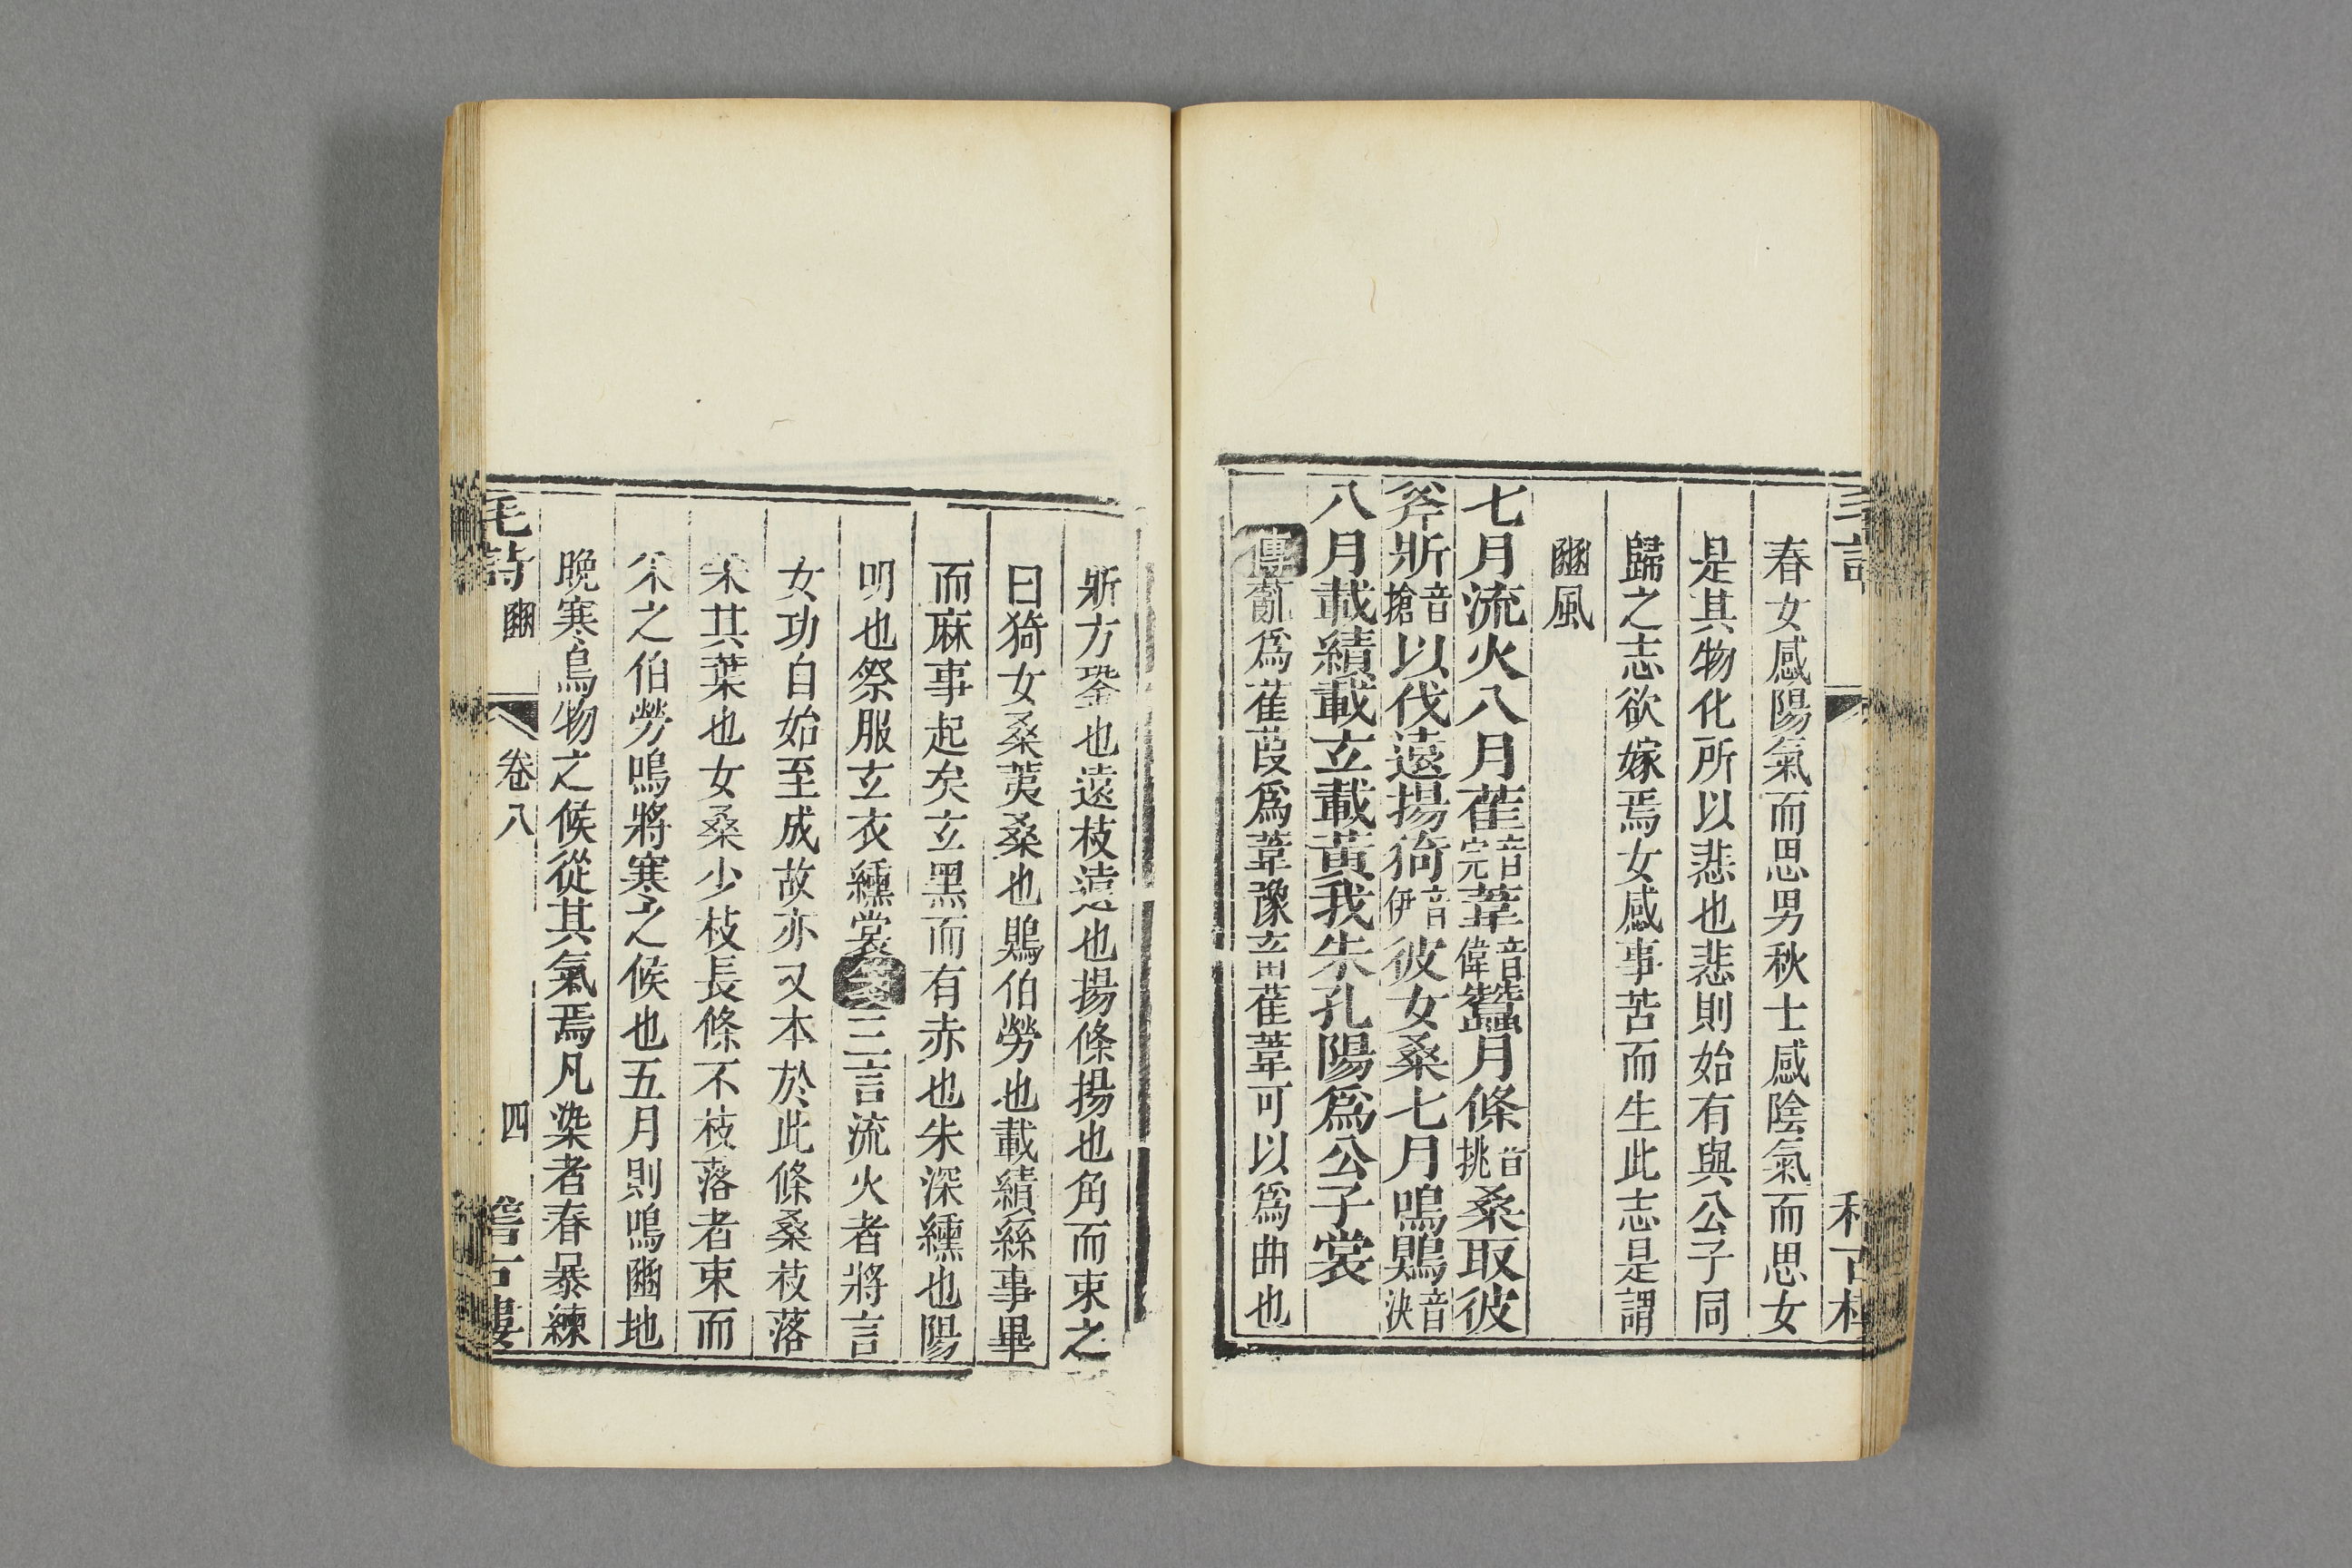 春女感陽氣而思男秋士感陰氣而思女
是其物化所以悲也悲則始有與公子同
歸之志欲嫁焉女感事苦而生此志是謂
豳風
七月流火八月萑音完葦音偉蠶月條音挑桑取彼
斧斨音搶以伐遠揚猗音伊彼女桑七月鳴鵙音決
八月載績載玄載黃我朱孔陽爲公子裳
傳薍爲萑葭爲葦豫畜萑葦可以爲曲也
斨方銎也遠枝遠也揚條揚也角而束之
曰猗女桑荑桑也鵙伯勞也載績絲事畢
而麻事起矣玄黑而有赤也朱深纁也陽
明也祭服玄衣纁裳箋三言流火者將言
女功自始至成故亦又本於此條桑枝落
采其葉也女桑少枝長條不枝落者束而
采之伯勞鳴將寒之候也五月則鳴豳地
晚寒鳥物之候從其氣焉凡染者春暴練
毛詩 豳 卷八 四 稽古樓